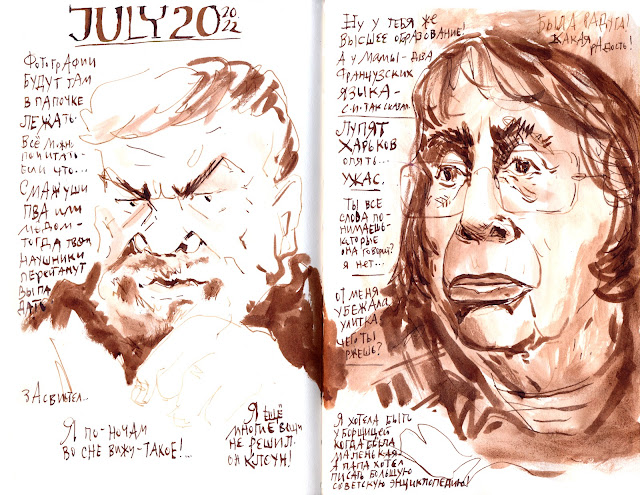 JULY 20 2022
ФОТОГРАФИИ
БУДУТ ТАМ
В ПАПОЧКЕ
ЛЕЖАТЬ.
ВСЁ МОЖНО
ПОЧИТАТЬ-
ЕСЛИ ЧТО...
СМАЖ УШИ
ПВА ИЛИ
МЁДОМ-
ТОГДА ТВОИ
НАУШНИКИ
ПЕРЕСТАНУТ
ВЫПА
ДАТЬ
Я ПО-НОЧАМ
ВО СНЕ ВИЖУ-ТАКОЕ!...
Я ЕЩЁ
МНОГИЕ ВЕЩИ
НЕ РЕШИЛ.
ОН КЛОУН!
НУ У ТЕБЯ ЖЕ
ВЫСШЕЕ ОБРАЗОВАНИЕ!
А У МАМЫ-ДВА
ФРАНЦУЗСКИХ
ЯЗЫКА-
С.И. ТАК СКАЗАЛ.
ЛУПЯТ
ХАРЬКОВ
ОПЯТЬ...
УЖАС.
ТЫ ВСЕ
СЛОВА ПО-
НИМАЕШЬ-
КОТОРЫЕ
ОНА ГОВОРИТ?
Я НЕТ...
ОТ МЕНЯ
УБЕЖАЛА
УЛИТКА.
ЧЕГО ТЫ
РЖЕШЬ?
Я ХОТЕЛА БЫТЬ
УБОРЩИЦЕЙ
КОГДА БЫЛА
МАЛЕНЬКАЯ-
А ПАПА ХОТЕЛ
ПИСАТЬ БОЛЬШУЮ
СОВЕТСКУЮ ЭНЦИКЛОПЕДИЮ!
БЫЛА РАДУГА!
КАКАЯ
РАДОСТЬ!